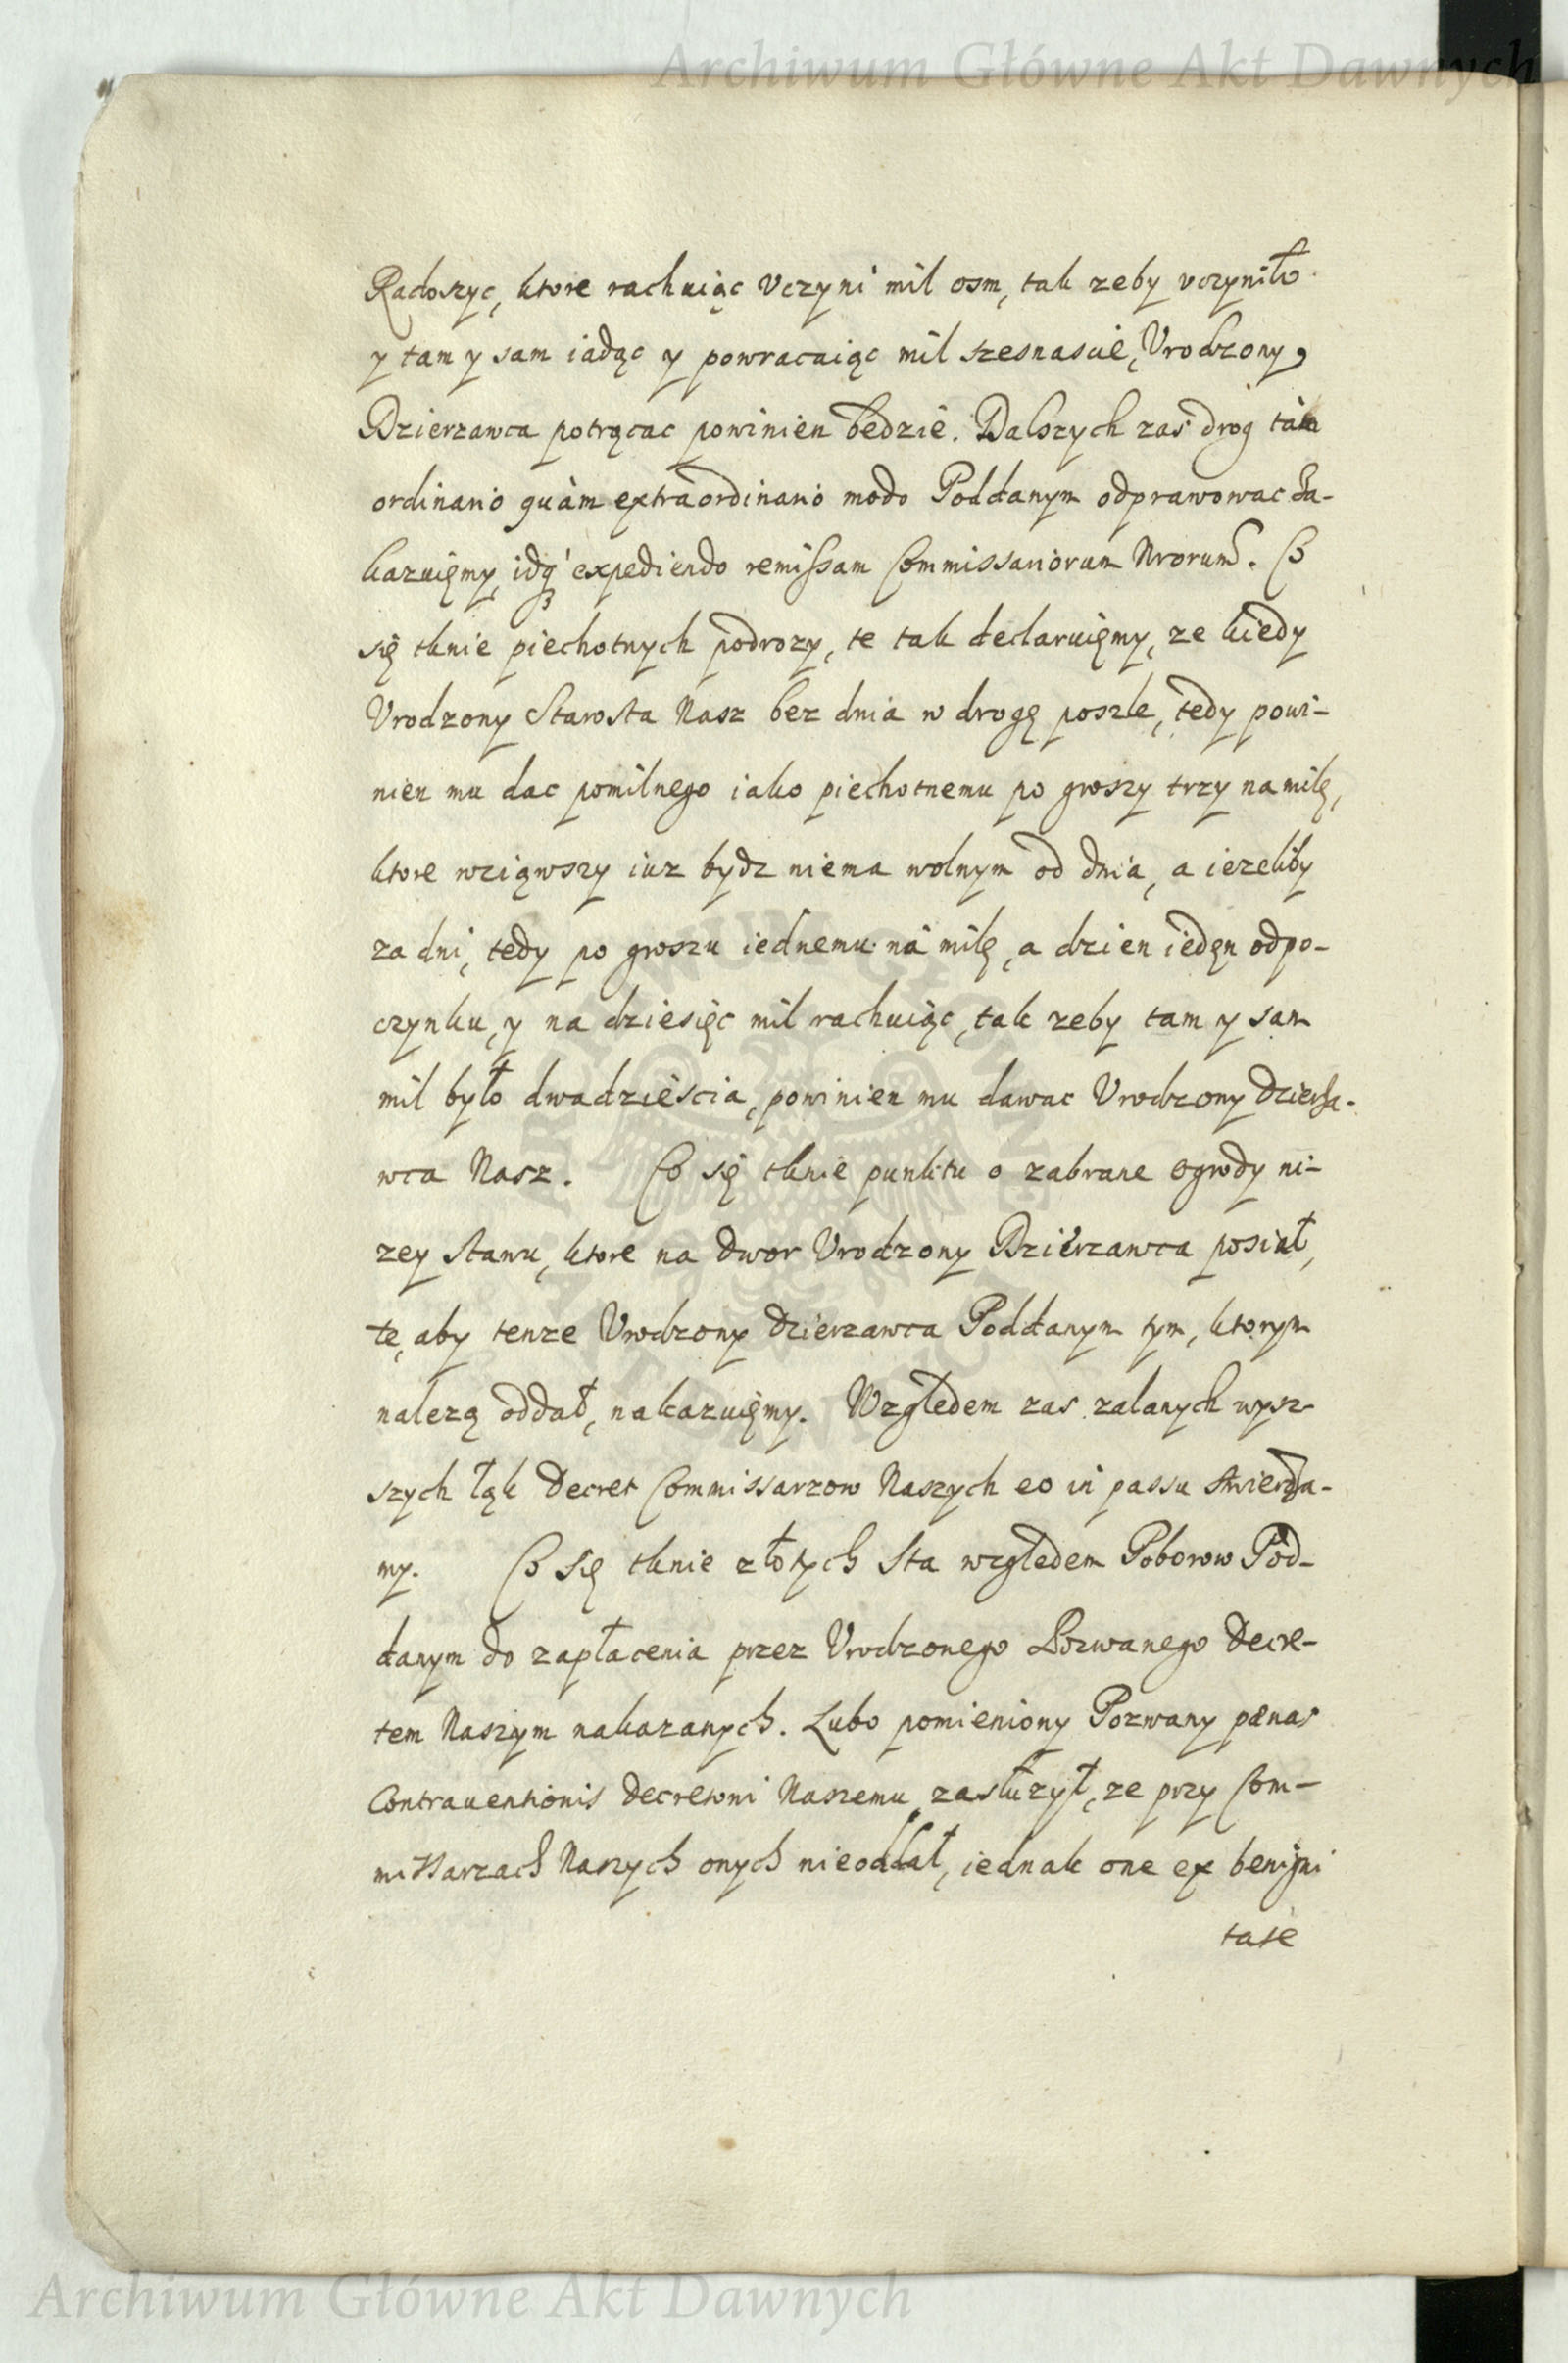 Archiwum Główne Akt Dawnych
Radoszyc, ktore rachuiąc Vczyni mil osm, tak zeby vczyniło
y tam y sam iadąc y powracaiąc mil szesnascie, Vrodzony
Dzierzawca potrącac powinien będzie. Dalszych zas drog tàm
ordinariò quàm extraordinariò modo Poddanym odprawowac Za-
kazuięmy, idq́₃ expediendo remissam Commissariorum Nrorum. Co
się tknie piechotnych podrozy, te tak declaruięmy, ze kiedy
Vrodzony Starosta Nasz bez dnia w drogę poszle, tedy powi-
nien mu dac pomilnego iako piechotnemu po groszy trzy na milę,
ktore wziąwszy iuz bydz niema wolnym od dnia, a iezeliby
za dni, tedy po groszu iednemu na milę, a dzien iedęn odpo-
czynku, y na dziesięc mil rachuiąc, tak zeby tam y sam
mil było dwadziescia, powinien mu dawac Vrodzony Dzierza-
wca Nasz. Co się tknie punktu o zabrane ogrody ni-
zey stawu, ktore na dwor Vrodzony Dzierzawca posiał,
te, aby tenze Vrodzony Dzierzawca Poddanym tym, ktorym
nalezą oddał, nakazuięmy. Względem zas zalanych wysz-
szych łąk Decret Commissarzow Naszych eo in passu stwierdza-
my. Co się tknie złotych sta względem Poborow Pod-
danym do zapłacenia przez Vrodzonego Pozwanego Decre-
tem Naszym nakazanych. Lubo pomieniony Pozwany pænas
Contrauentionis Decretowi Naszemu zasłuzył, ze przy Com-
missarzach Naszych onych nieoddał, iednak one ex benigni
tate
Archiwum Główne Akt Dawnych